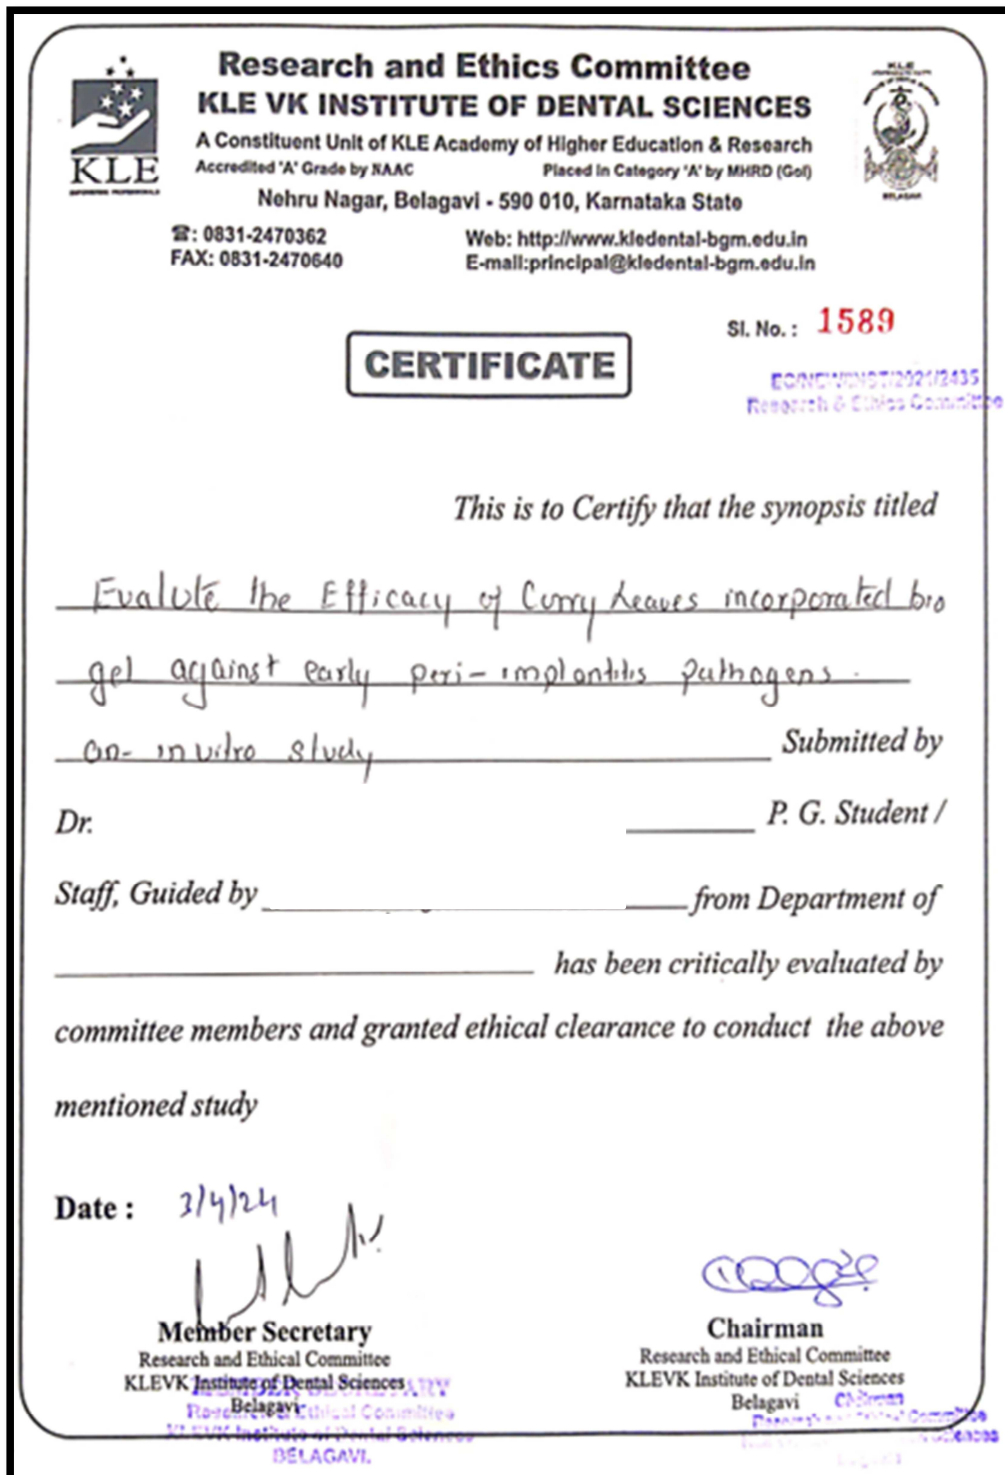 Research and Ethics Committee
KLE VK INSTITUTE OF DENTAL SCIENCES
A Constituent Unit of KLE Academy of Higher Education & Research
Accredited 'A' Grade by NAAC Placed in Category 'A' by MHRD (GoI)
Nehru Nagar, Belagavi - 590 010, Karnataka State
KLE
KLE
BELAGAVI
☎: 0831-2470362 Web: http://www.kledental-bgm.edu.in
FAX: 0831-2470640 E-mail:principal@kledental-bgm.edu.in
Sl. No. : 1589
CERTIFICATE
2021/2435
Research & Ethics Committee
This is to Certify that the synopsis titled
Evalute the Efficacy of Curry Leaves incorporated bio
gel against early peri-implantitis pathogens.
an- invitro study Submitted by
Dr. P. G. Student /
Staff, Guided by from Department of
has been critically evaluated by
committee members and granted ethical clearance to conduct the above
mentioned study
Date : 3/4/24
Member Secretary
Research and Ethical Committee
KLEVK Institute of Dental Sciences
Belagavi
MEMBER SECRETARY
Research & Ethical Committee
KLEVK Institute of Dental Sciences
BELAGAVI.
Chairman
Research and Ethical Committee
KLEVK Institute of Dental Sciences
Belagavi
Chairman
Research and Ethical Committee
Sciences